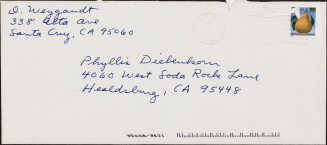 D. Weygandt
338 Alta Ave
Santa Cruz, CA 95060
Phyllis Diebenkorn
4060 West Soda Rock Lane
Healdsburg, CA 95448